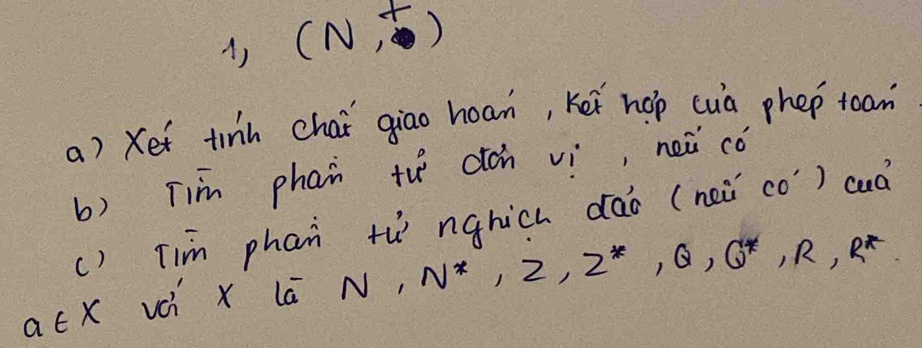 1, (N, +)
a) Xét tính chất giao hoán, kết hợp của phép toán
b) Tìm phần tử đơn vị, nếu có
c) Tìm phần tử nghịch đảo (nếu có) của
a ∈ X với X là N, N*, Z, Z*, Q, Q*, R, R*.